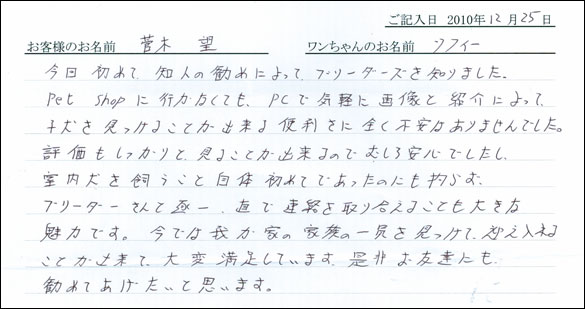 ご記入日 2010年12月25日
お客様のお名前 菅木 望 ワンちゃんのお名前 ソフィー
今日初めて、知人の勧めによって、ブリーダーズを知りました。
Pet Shopに行かなくても、PCで気軽に画像と紹介によって、
子犬を見つけることが出来る便利さに全く不安はありませんでした。
評価もしっかりと、見ることが出来るのでむしろ安心でしたし、
室内犬を飼うこと自体初めてであったのにも拘らず、
ブリーダーさんと逐一、直で連絡を取り合えることも大きな
魅力です。今では我が家の家族の一員を見つけて、迎え入れる
ことが出来て、大変満足しています。是非お友達にも、
勧めてあげたいと思います。